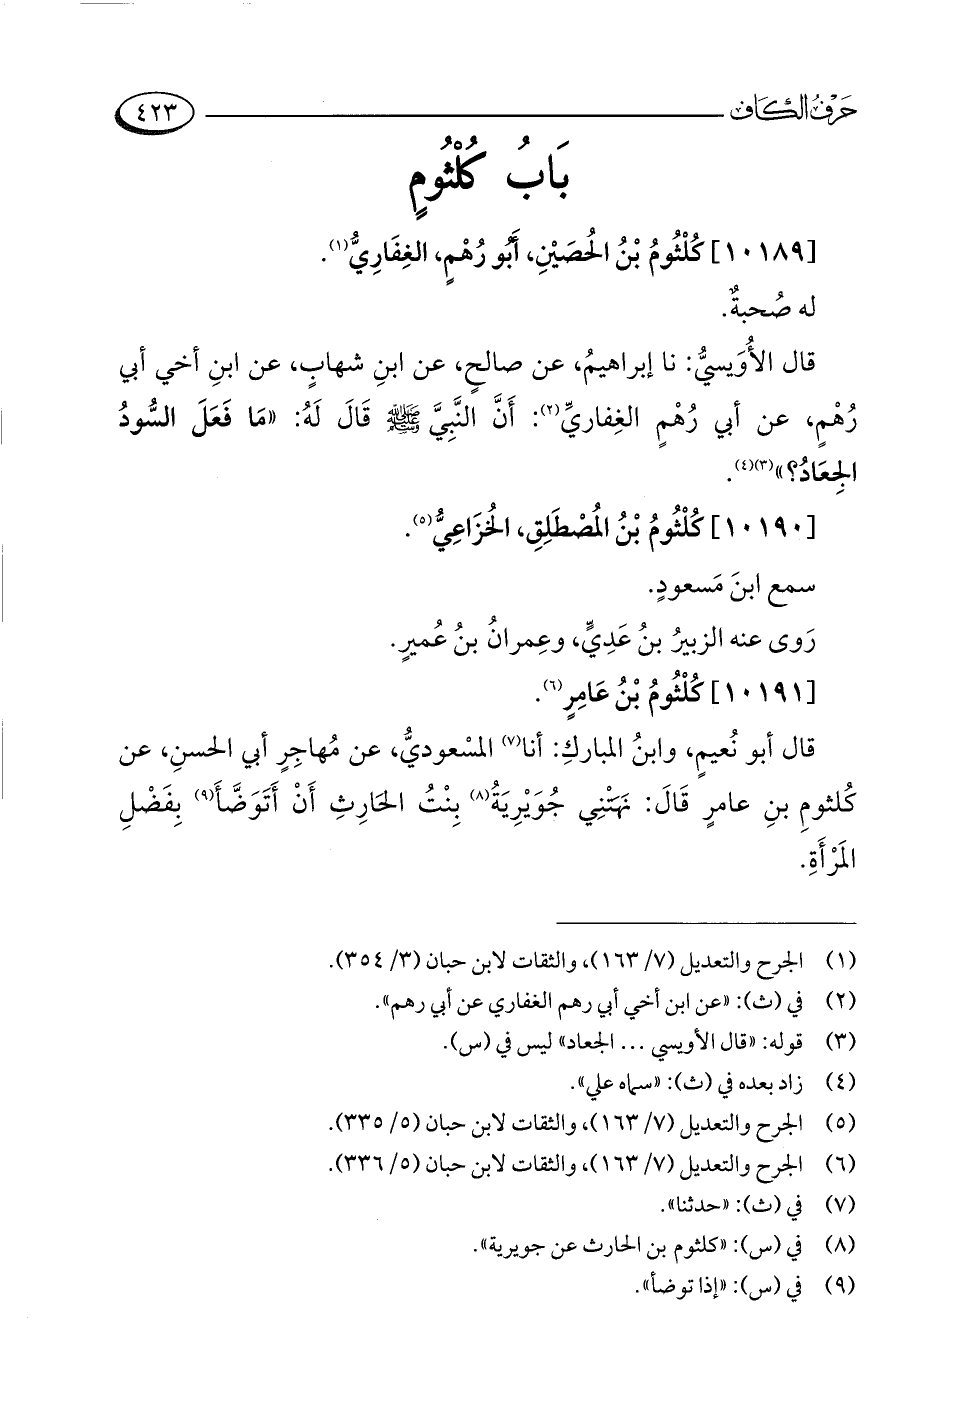 حَرْفُ الْكَافِ
٤٢٣
بَابُ كُلْثُومٍ
[١٠١٨٩] كُلْثُومُ بْنُ الحُصَيْنِ، أَبُو رُهْمٍ، الغِفَارِيُّ(١).
له صُحبةٌ.
قال الأُوَيسيُّ: نا إبراهيمُ، عن صالحٍ، عن ابنِ شهابٍ، عن ابنِ أخي أبي
رُهْمٍ، عن أبي رُهْمٍ الغِفاريِّ(٢): أَنَّ النَّبِيَّ ﷺ قَالَ لَهُ: «مَا فَعَلَ السُّودُ
الجِعَادُ؟»(٣)(٤).
[١٠١٩٠] كُلْثُومُ بْنُ المُصْطَلِقِ، الخُزَاعِيُّ(٥).
سمع ابنَ مَسعودٍ.
رَوى عنه الزبيرُ بنُ عَدِيٍّ، وعِمرانُ بنُ عُميرٍ.
[١٠١٩١] كُلْثُومُ بْنُ عَامِرٍ(٦).
قال أبو نُعيمٍ، وابنُ المباركِ: أنا(٧) المسْعوديُّ، عن مُهاجِرٍ أبي الحسنِ، عن
كُلثومِ بنِ عامرٍ قَالَ: نَهَتْنِي جُوَيْرِيَةُ(٨) بِنْتُ الحَارِثِ أَنْ أَتَوَضَّأَ(٩) بِفَضْلِ
المَرْأَةِ.
(١) الجرح والتعديل (٧/ ١٦٣)، والثقات لابن حبان (٣/ ٣٥٤).
(٢) في (ث): «عن ابن أخي أبي رهم الغفاري عن أبي رهم».
(٣) قوله: «قال الأويسي ... الجعاد» ليس في (س).
(٤) زاد بعده في (ث): «سماه علي».
(٥) الجرح والتعديل (٧/ ١٦٣)، والثقات لابن حبان (٥/ ٣٣٥).
(٦) الجرح والتعديل (٧/ ١٦٣)، والثقات لابن حبان (٥/ ٣٣٦).
(٧) في (ث): «حدثنا».
(٨) في (س): «كلثوم بن الحارث عن جويرية».
(٩) في (س): «إذا توضأ».